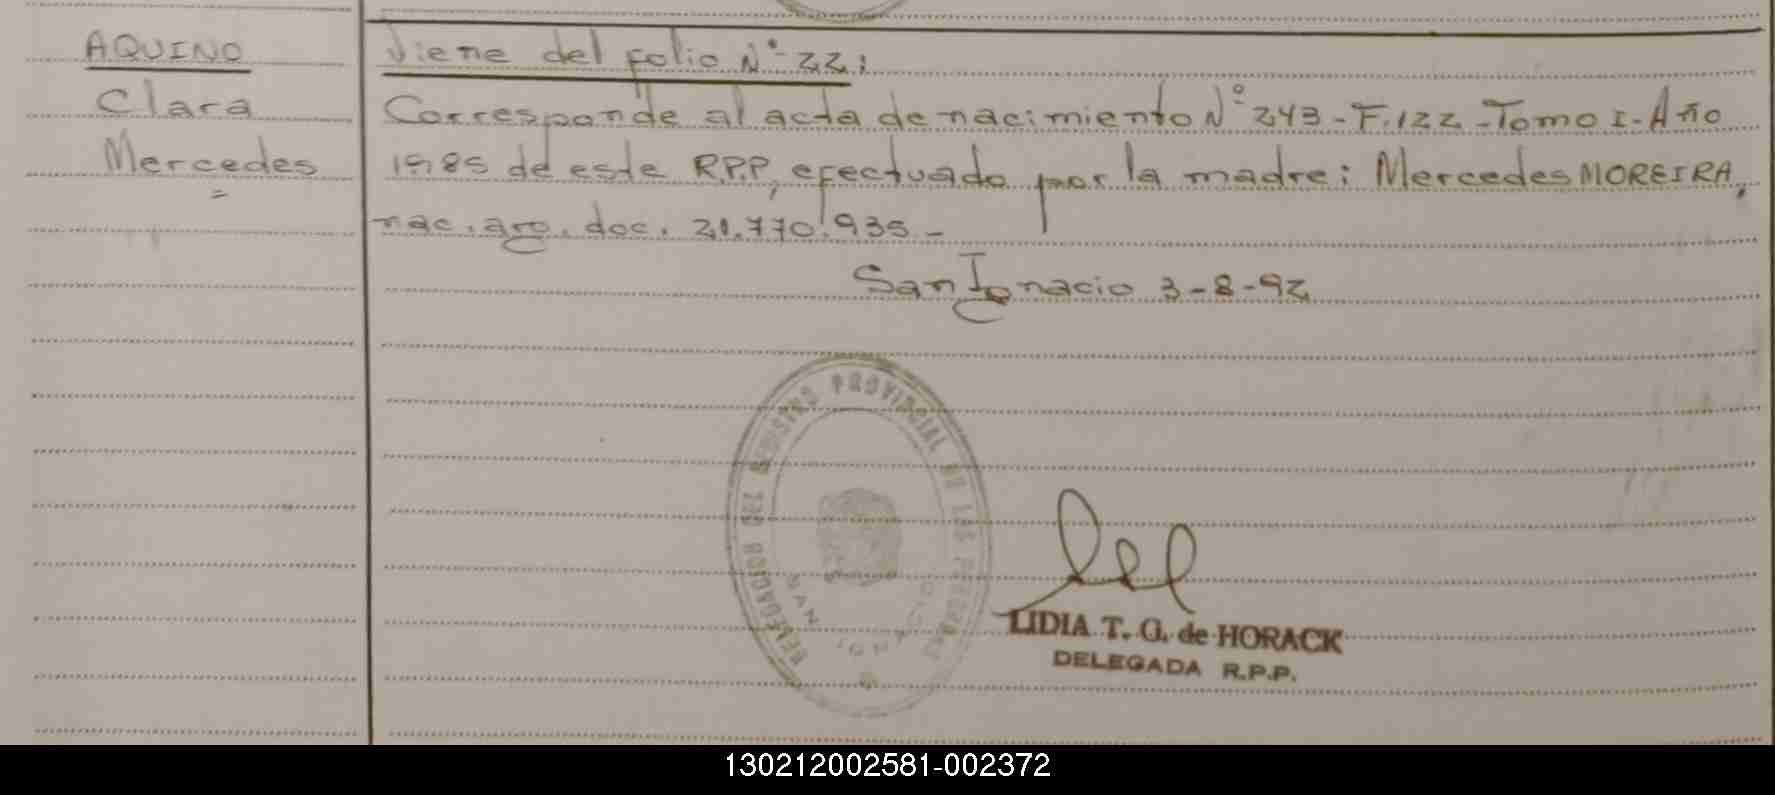 AQUINO
Clara
Mercedes
Viene del folio N° 22:
Corresponde al acta de nacimiento N° 243 - F. 122 - Tomo I - Año
1985 de este R.P.P, efectuado por la madre: Mercedes MOREIRA,
nac. arg. doc. 21.770.935 -
San Ignacio 3-8-92
DELEGACION DEL REGISTRO PROVINCIAL DE LAS PERSONAS
SAN IGNACIO
LIDIA T. G. de HORACK
DELEGADA R.P.P.
130212002581-002372